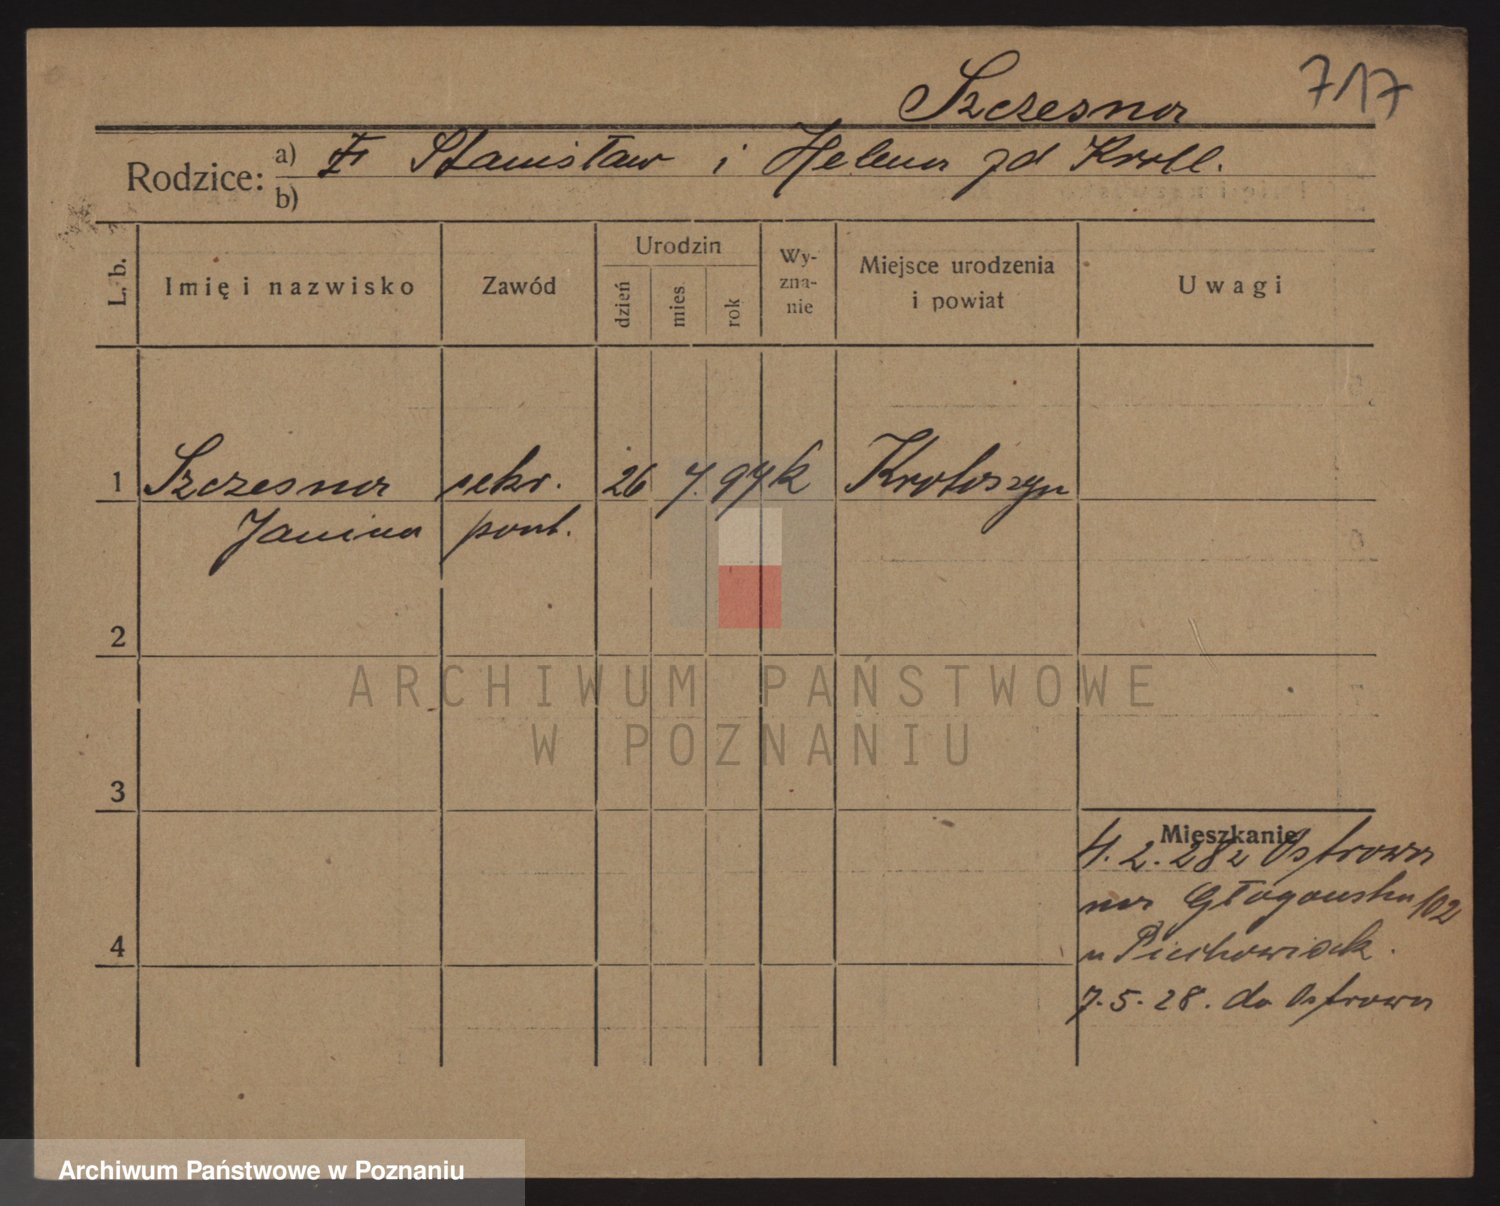 717
Szczesna
Rodzice: a) Stanisław i Helena zd Kroll.
b)
L. b. Imię i nazwisko Zawód Urodzin dzień mies rok Wyzna-nie Miejsce urodzenia i powiat Uwagi
1 Szczesna sekr. 26 7. 97 k Krotoszyn
Janina
2
3
4
Mieszkanie
4. 2. 28 z Ostrowa
na Głogowska 102
u Piechowiak.
7. 5. 28. do Ostrowa
ARCHIWUM PAŃSTWOWE
W POZNANIU
Archiwum Państwowe w Poznaniu